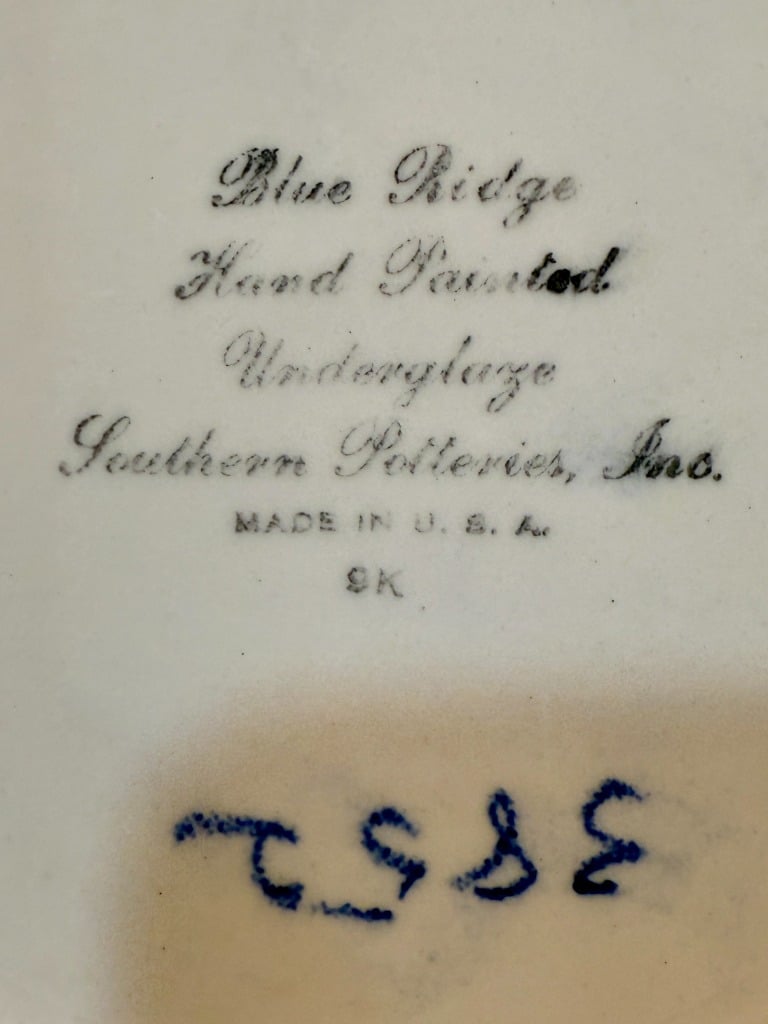 Blue Ridge
Hand Painted
Underglaze
Southern Potteries, Inc.
MADE IN U. S. A.
9K
3852